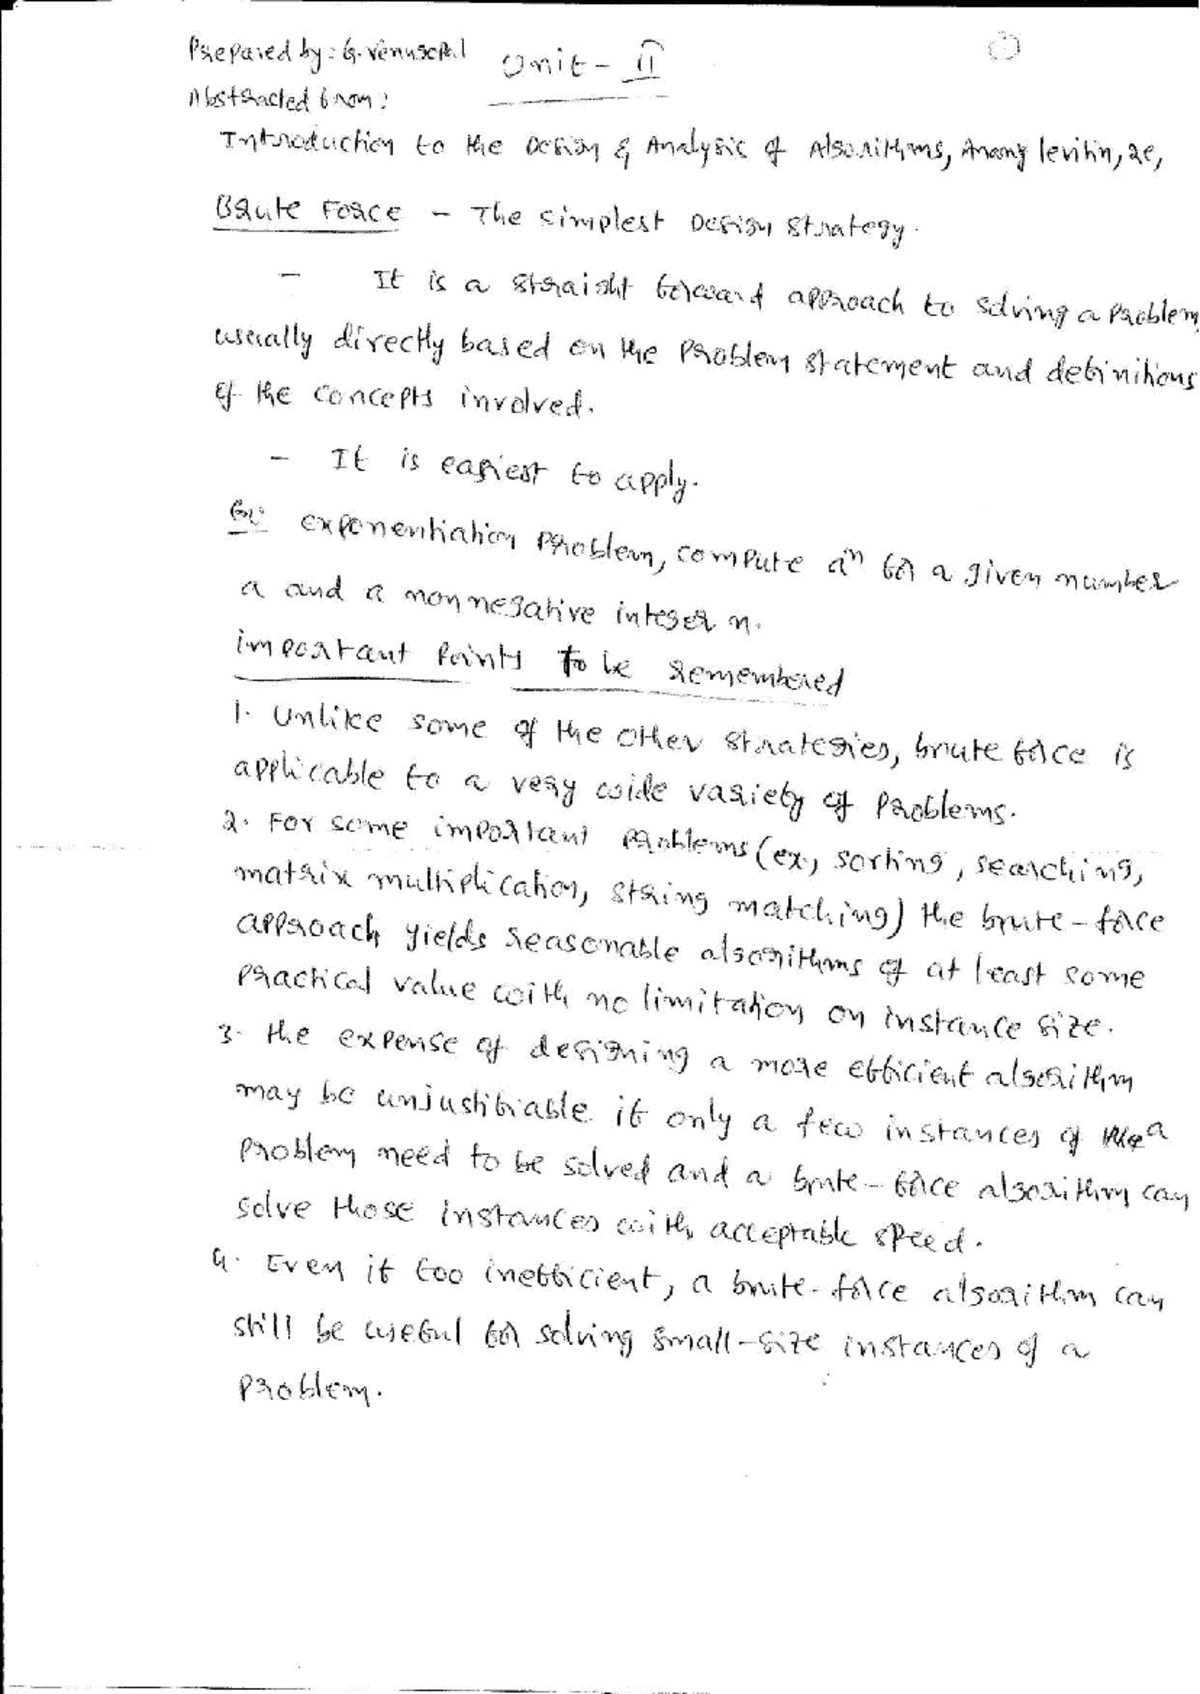 Prepared by: G. Venugopal Unit - II
Abstracted from:
Introduction to the Design & Analysis of Algorithms, Anany levitin, 2e,
Brute Force - The simplest Design strategy.
- It is a straight forward approach to solving a problem
usually directly based on the problem statement and definitions
of the concepts involved.
- It is easiest to apply.
Ex: exponentiation problem, compute aⁿ for a given number
a and a nonnegative integer n.
important points to be remembered
1. Unlike some of the other strategies, brute force is
applicable to a very wide variety of problems.
2. For some important problems (ex, sorting, searching,
matrix multiplication, string matching) the brute-force
approach yields reasonable algorithms of at least some
practical value with no limitation on instance size.
3. the expense of designing a more efficient algorithm
may be unjustifiable if only a few instances of a
problem need to be solved and a brute-force algorithm can
solve those instances with acceptable speed.
4. Even if too inefficient, a brute-force algorithm can
still be useful for solving small-size instances of a
problem.